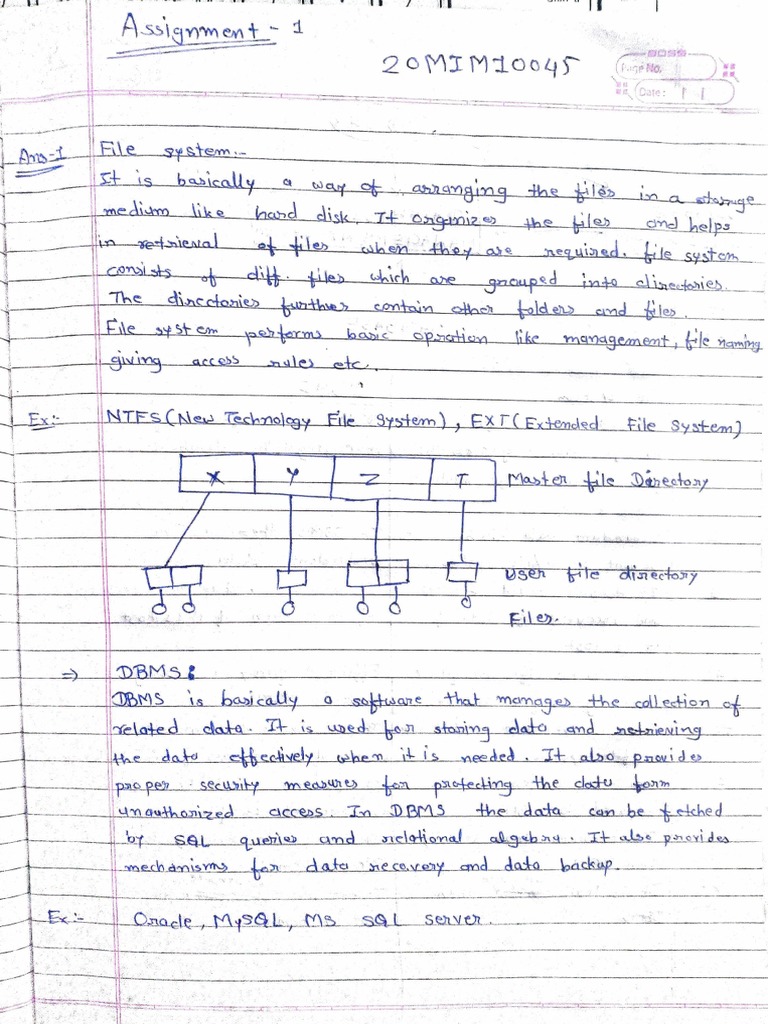 Assignment - 1
20MIM10045
BOSS
Page No.
Date:
Ans-1 File system:-
It is basically a way of arranging the files in a storage
medium like hard disk. It organizes the files and helps
in retrieval of files when they are required. file system
consists of diff. files which are grouped into directories.
The directories further contain other folders and files.
File system performs basic opration like management, file naming
giving access rules etc.
Ex:- NTFS (New Technology File System), EXT (Extended File System)
X Y Z T Master file Directory
user file directory
Files.
⇒ DBMS:
DBMS is basically a software that manages the collection of
related data. It is used for storing data and retrieving
the data effectively when it is needed. It also provides
proper security measures for protecting the data form
unauthorized access. In DBMS the data can be fetched
by SQL queries and relational algebra. It also provides
mechanisms for data recovery and data backup.
Ex:- Oracle, MySQL, MS SQL server.